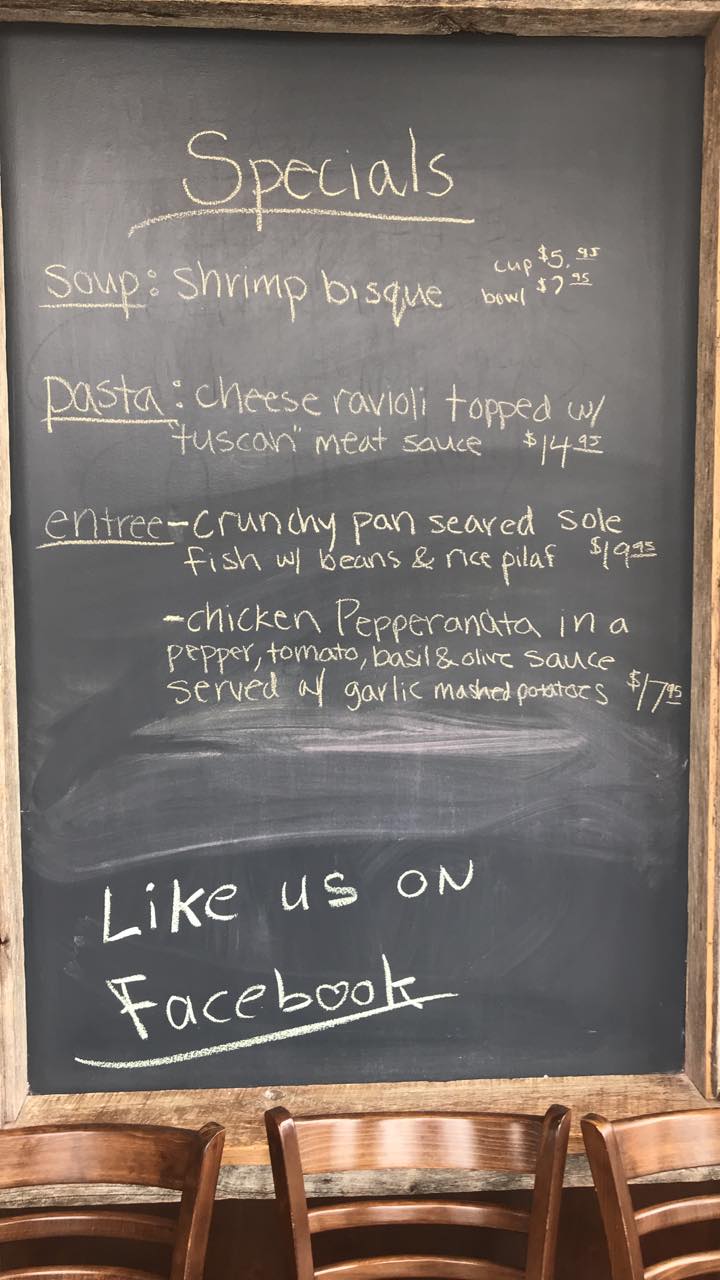 Specials
soup: shrimp bisque cup $5.95
bowl $7.95
pasta: cheese ravioli topped w/
"tuscan" meat sauce $14.95
entree - crunchy pan seared sole
fish w/ beans & rice pilaf $19.95
- chicken Pepperanata in a
pepper, tomato, basil & olive sauce
served w/ garlic mashed potatoes $17.95
Like us on
Facebook